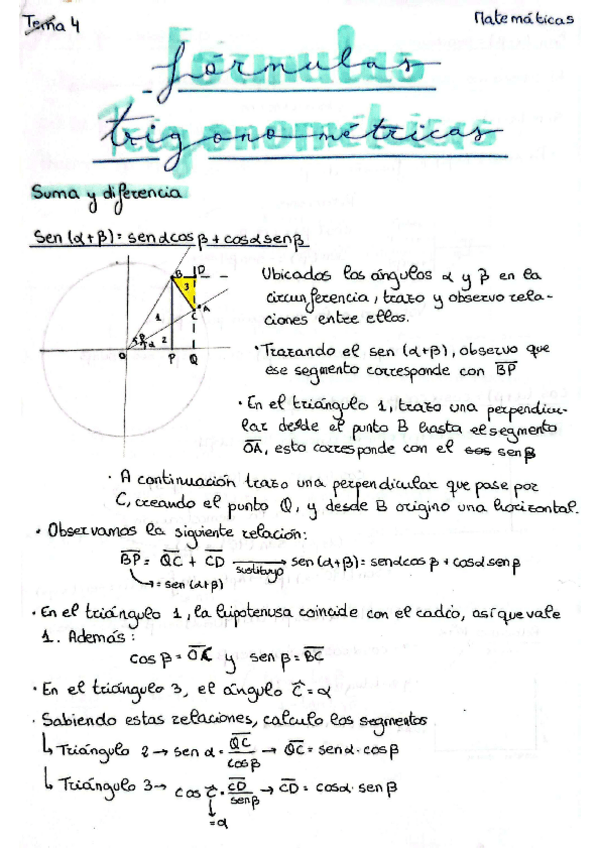 Tema 4
Matemáticas
Fórmulas
trigonométricas
Suma y diferencia
Sen (α+β) = senαcosβ + cosαsenβ
B D
3
C A
1
β
α 2
O P Q
Ubicados los ángulos α y β en la
circunferencia, trazo y observo rela-
ciones entre ellos.
· Trazando el sen (α+β), observo que
ese segmento corresponde con B̅P̅
· En el triángulo 1, trazo una perpendicu-
lar desde el punto B hasta el segmento
O̅A̅, esto corresponde con el cos sen β
· A continuación trazo una perpendicular que pase por
C, creando el punto Q, y desde B origino una horizontal.
· Observamos la siguiente relación:
B̅P̅ = Q̅C̅ + C̅D̅ → sen (α+β) = senαcosβ + cosαsenβ
sustituyo
→ = sen (α+β)
· En el triángulo 1, la hipotenusa coincide con el radio, así que vale
1. Además:
cos β = O̅C̅ y sen β = B̅C̅
· En el triángulo 3, el ángulo Ĉ = α
· Sabiendo estas relaciones, calculo los segmentos
↳ Triángulo 2 → sen α = Q̅C̅ / cosβ → Q̅C̅ = senα · cosβ
↳ Triángulo 3 → cos Ĉ = C̅D̅ / senβ → C̅D̅ = cosα · senβ
↓
= α